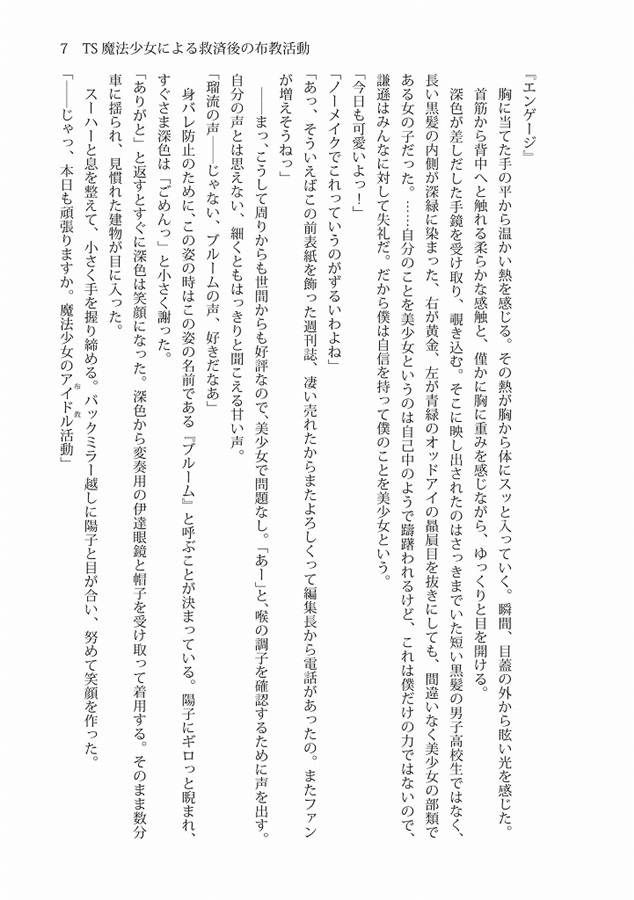 7　TS魔法少女による救済後の布教活動
『エンゲージ』
　胸に当てた手の平から温かい熱を感じる。その熱が胸から体にスッと入っていく。瞬間、目蓋の外から眩い光を感じた。
首筋から背中へと触れる柔らかな感触と、僅かに胸に重みを感じながら、ゆっくりと目を開ける。
　深色が差しだした手鏡を受け取り、覗き込む。そこに映し出されたのはさっきまでいた短い黒髪の男子高校生ではなく、
長い黒髪の内側が深緑に染まった、右が黄金、左が青緑のオッドアイの贔屓目を抜きにしても、間違いなく美少女の部類で
ある女の子だった。……自分のことを美少女というのは自己中のようで躊躇われるけど、これは僕だけの力ではないので、
謙遜はみんなに対して失礼だ。だから僕は自信を持って僕のことを美少女という。
「今日も可愛いよっ！」
「ノーメイクでこれっていうのがずるいわよね」
「あっ、そういえばこの前表紙を飾った週刊誌、凄い売れたからまたよろしくって編集長から電話があったの。またファン
が増えそうねっ」
　――まっ、こうして周りからも世間からも好評なので、美少女で問題なし。「あー」と、喉の調子を確認するために声を出す。
自分の声とは思えない、細くともはっきりと聞こえる甘い声。
「瑠流の声――じゃない、ブルームの声、好きだなあ」
　身バレ防止のために、この姿の時はこの姿の名前である『ブルーム』と呼ぶことが決まっている。陽子にギロっと睨まれ、
すぐさま深色は「ごめんっ」と小さく謝った。
「ありがと」と返すとすぐに深色は笑顔になった。深色から変奏用の伊達眼鏡と帽子を受け取って着用する。そのまま数分
車に揺られ、見慣れた建物が目に入った。
　スーハーと息を整えて、小さく手を握り締める。バックミラー越しに陽子と目が合い、努めて笑顔を作った。
「――じゃっ、本日も頑張りますか。魔法少女のアイドル活動」
布教